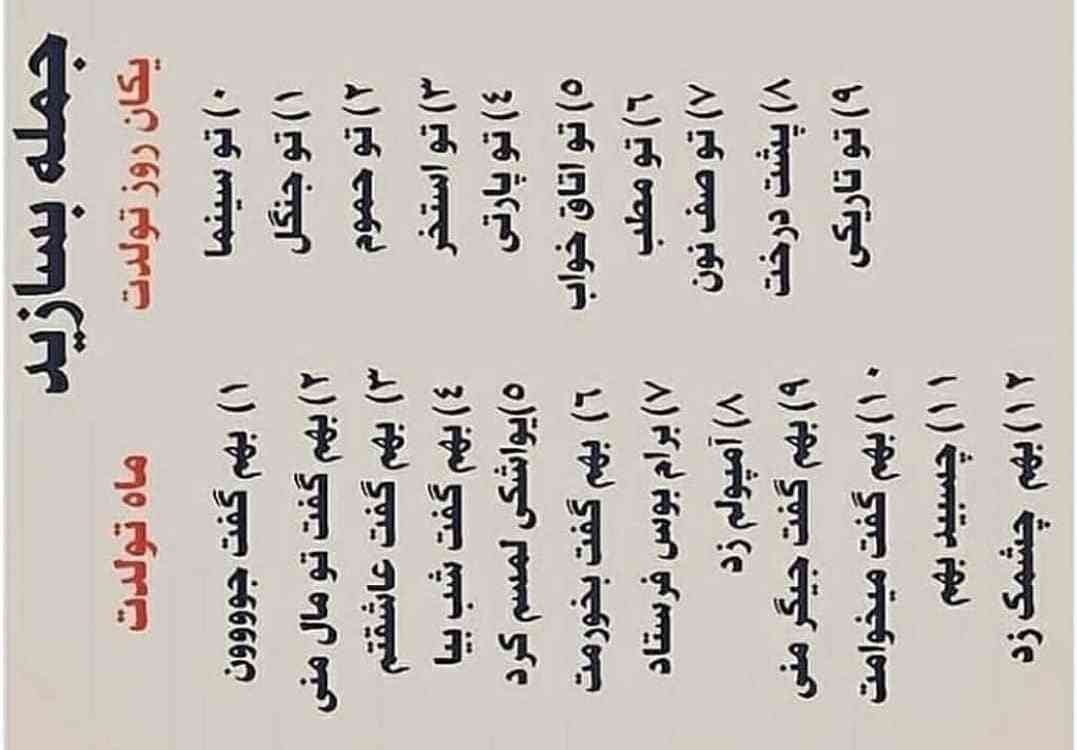 جمله بسازید
یکان روز تولدت
۰) تو سینما
۱) تو جنگل
۲) تو حموم
۳) تو استخر
٤) تو پارتی
۵) تو اتاق خواب
٦) تو مطب
۷) تو صف نون
۸) پشت درخت
۹) تو تاریکی
ماه تولدت
۱) بهم گفت جوووون
۲) بهم گفت تو مال منی
۳) بهم گفت عاشقتم
٤) بهم گفت شب بیا
۵)یواشکی لمسم کرد
٦) بهم گفت بخورمت
۷) برام بوس فرستاد
۸) آمپولم زد
۹) بهم گفت جیگر منی
۱۰) بهم گفت میخوامت
۱۱) چسبید بهم
۱۲) بهم چشمک زد